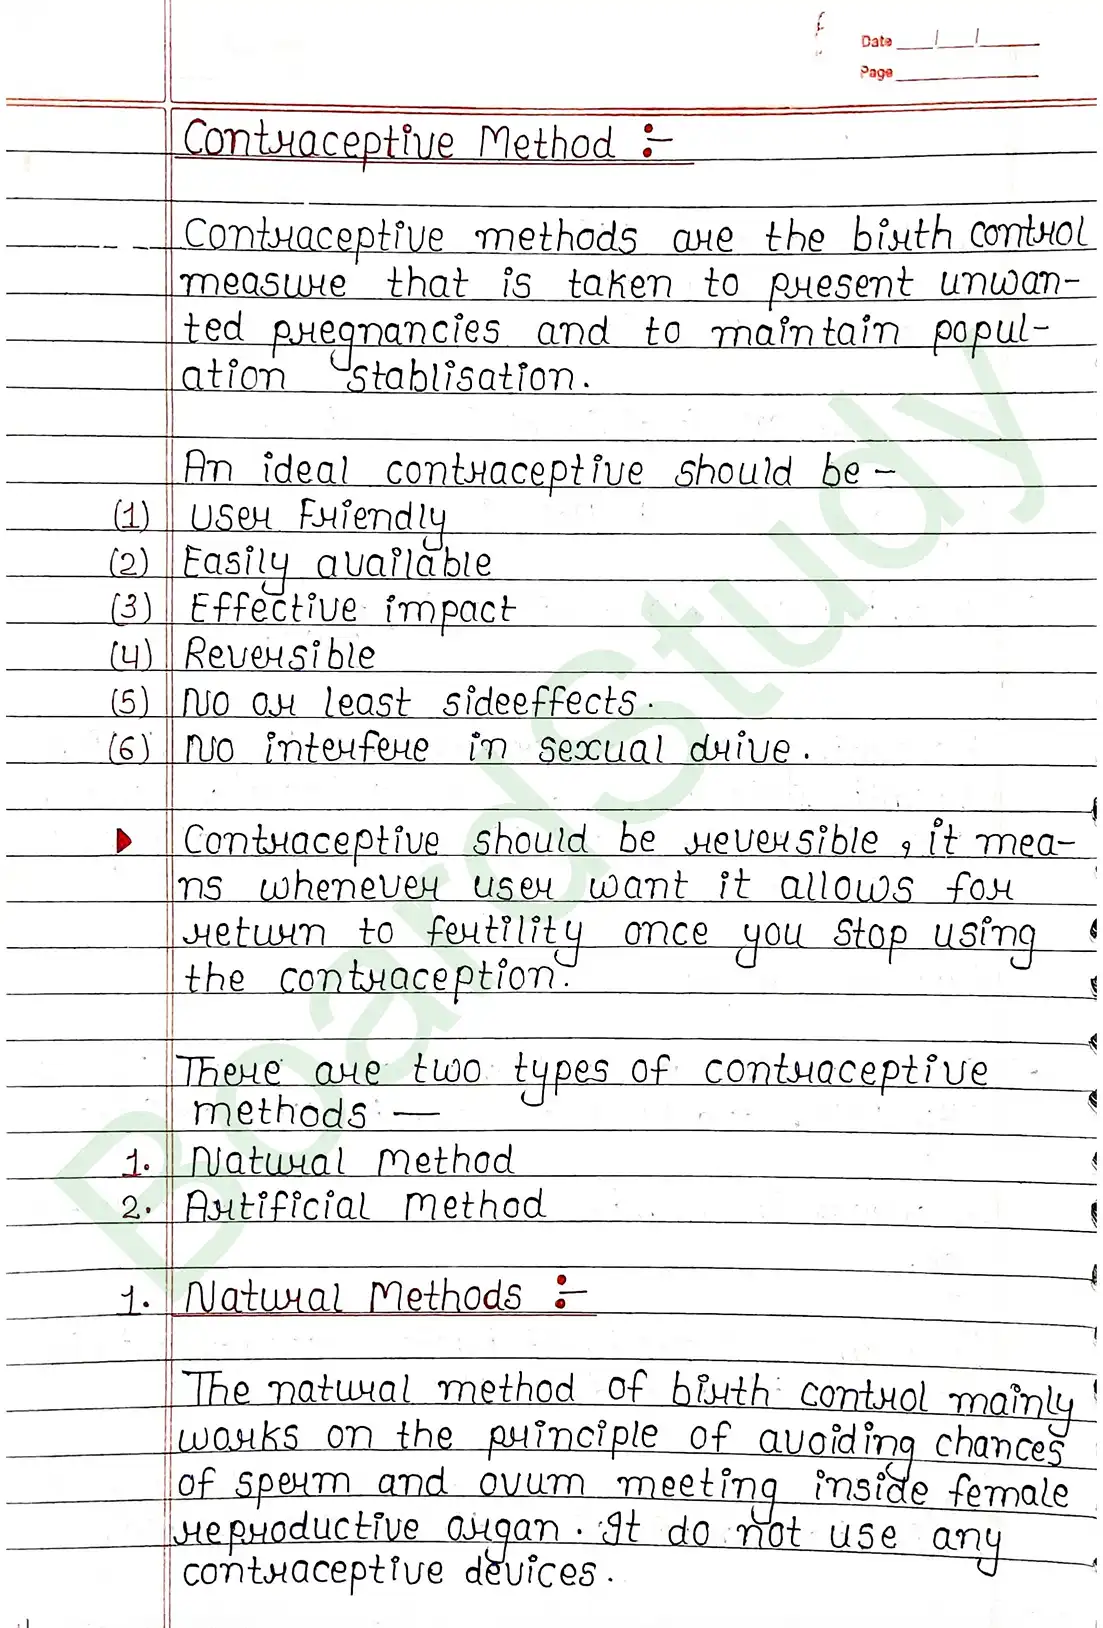 Date
Page
Contraceptive Method :-
Contraceptive methods are the birth control
measure that is taken to present unwan-
ted pregnancies and to maintain popul-
ation stablisation.
An ideal contraceptive should be -
(1) User Friendly
(2) Easily available
(3) Effective impact
(4) Reversible
(5) No or least sideeffects.
(6) No interfere in sexual drive.
Contraceptive should be reversible, it mea-
ns whenever user want it allows for
return to fertility once you stop using
the contraception.
There are two types of contraceptive
methods —
1. Natural Method
2. Artificial Method
1. Natural Methods :-
The natural method of birth control mainly
works on the principle of avoiding chances
of sperm and ovum meeting inside female
reproductive organ. It do not use any
contraceptive devices.
BoardStudy